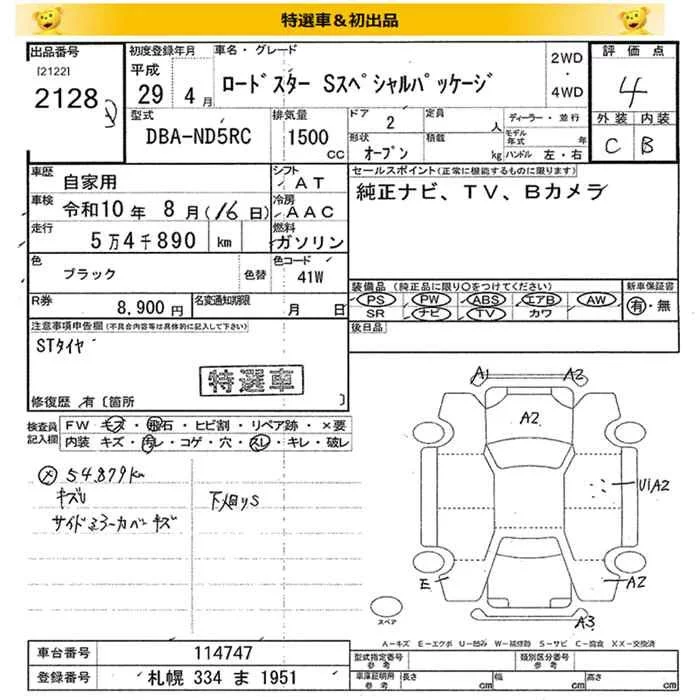 特選車＆初出品
出品番号
[2122]
2128
初度登録年月
平成
29 4月
車名・グレード
ロードスター Sスペシャルパッケージ
2WD
・
4WD
評価点
4
外装 内装
C B
型式
DBA-ND5RC
排気量
1500
CC
ドア 2
定員 人
形状 オープン
積載 kg
ディーラー・並行
モデル年式 年
ハンドル 左・右
車歴
自家用
シフト
AT
車検
令和10年 8月(16日)
冷房
AAC
走行
5万4千890 km
燃料
ガソリン
色
ブラック
色替
色コード
41W
R券
8,900円
名変通知期限
月 日
セールスポイント(正常に機能するものに限ります)
純正ナビ、TV、Bカメラ
装備品 (純正品に限り〇をつけてください)
PS PW ABS エアB AW
SR ナビ TV カワ
新車保証書
有・無
後日品
注意事項申告欄(不具合内容等は具体的に記入して下さい)
STタイヤ
特選車
修復歴 有〔箇所 〕
検査員記入欄
FW キズ・飛石・ヒビ割・リペア跡・×要
内装 キズ・汚レ・コゲ・穴・スレ・キレ・破レ
54,879km
キズU
サイドミラーカバーキズ
下廻りS
A1
A2
A2
U1A2
E
A2
A3
スペア
A－キズ E－エクボ U－凹み W－補修跡 S－サビ C－腐食 XX－交換済
車台番号 114747
登録番号 札幌 334 ま 1951
型式指定番号
参考
類別区分番号
参考
車庫証明用
参考
長さ cm
幅 cm
高さ cm